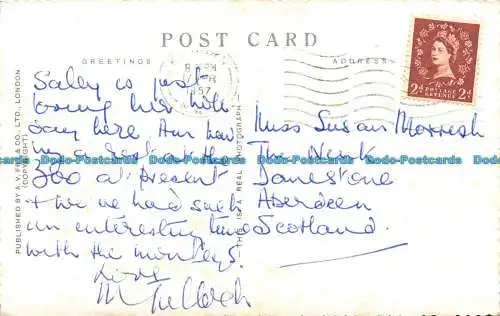 POST CARD
GREETINGS
ADDRESS
1957
2D POSTAGE REVENUE 2D
PUBLISHED BY A. V. FRY & CO., LTD., LONDON
(COPYRIGHT)
THIS IS A REAL PHOTOGRAPH
Sally is just
loving her holi
day here And hav
ing a rest in the
Zoo at present
& we've had such
an interesting time
with the monkeys!
Love
Miss Susan
The
Danestone
Aberdeen
Scotland
Dodo-Postcards Dodo-Postcards Dodo-Postcards Dodo-Postcards Dodo-Postcards